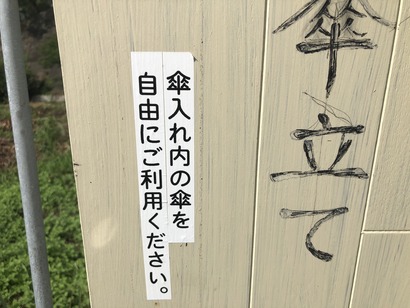 傘立て
傘入れ内の傘を
自由にご利用ください。